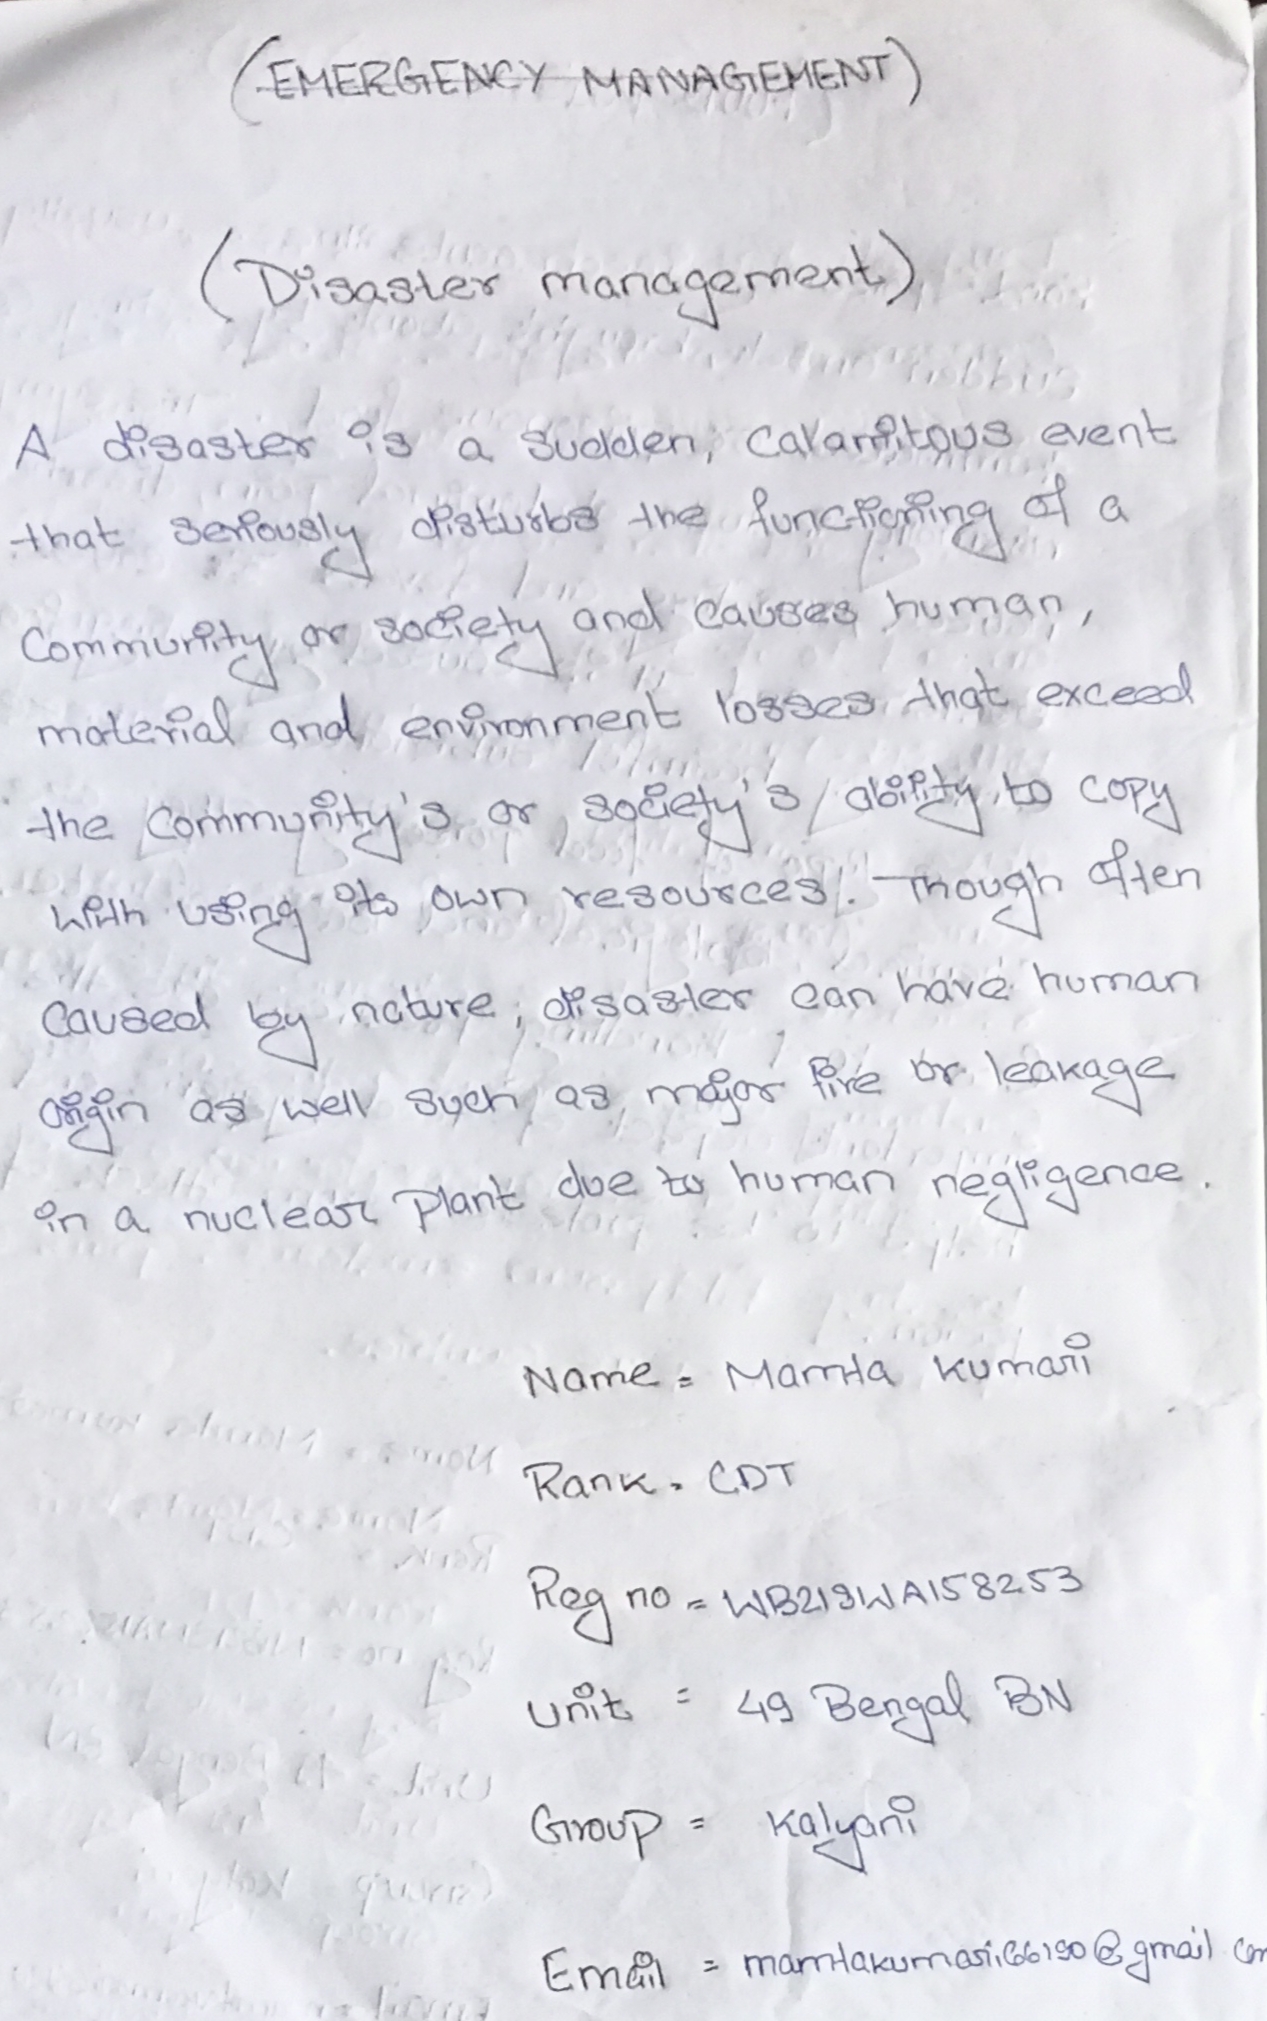 (EMERGENCY MANAGEMENT)
(Disaster management)
A disaster is a sudden, calamitous event
that seriously disturbs the functioning of a
Community or society and causes human,
material and environment losses that exceed
the community's or society's ability to copy
with using its own resources. Though often
caused by nature, disaster can have human
origin as well such as major fire or leakage
in a nuclear plant due to human negligence.
Name = Mamta Kumari
Rank = CDT
Reg no = WB219WA158253
Unit = 49 Bengal BN
Group = Kalyani
Email =